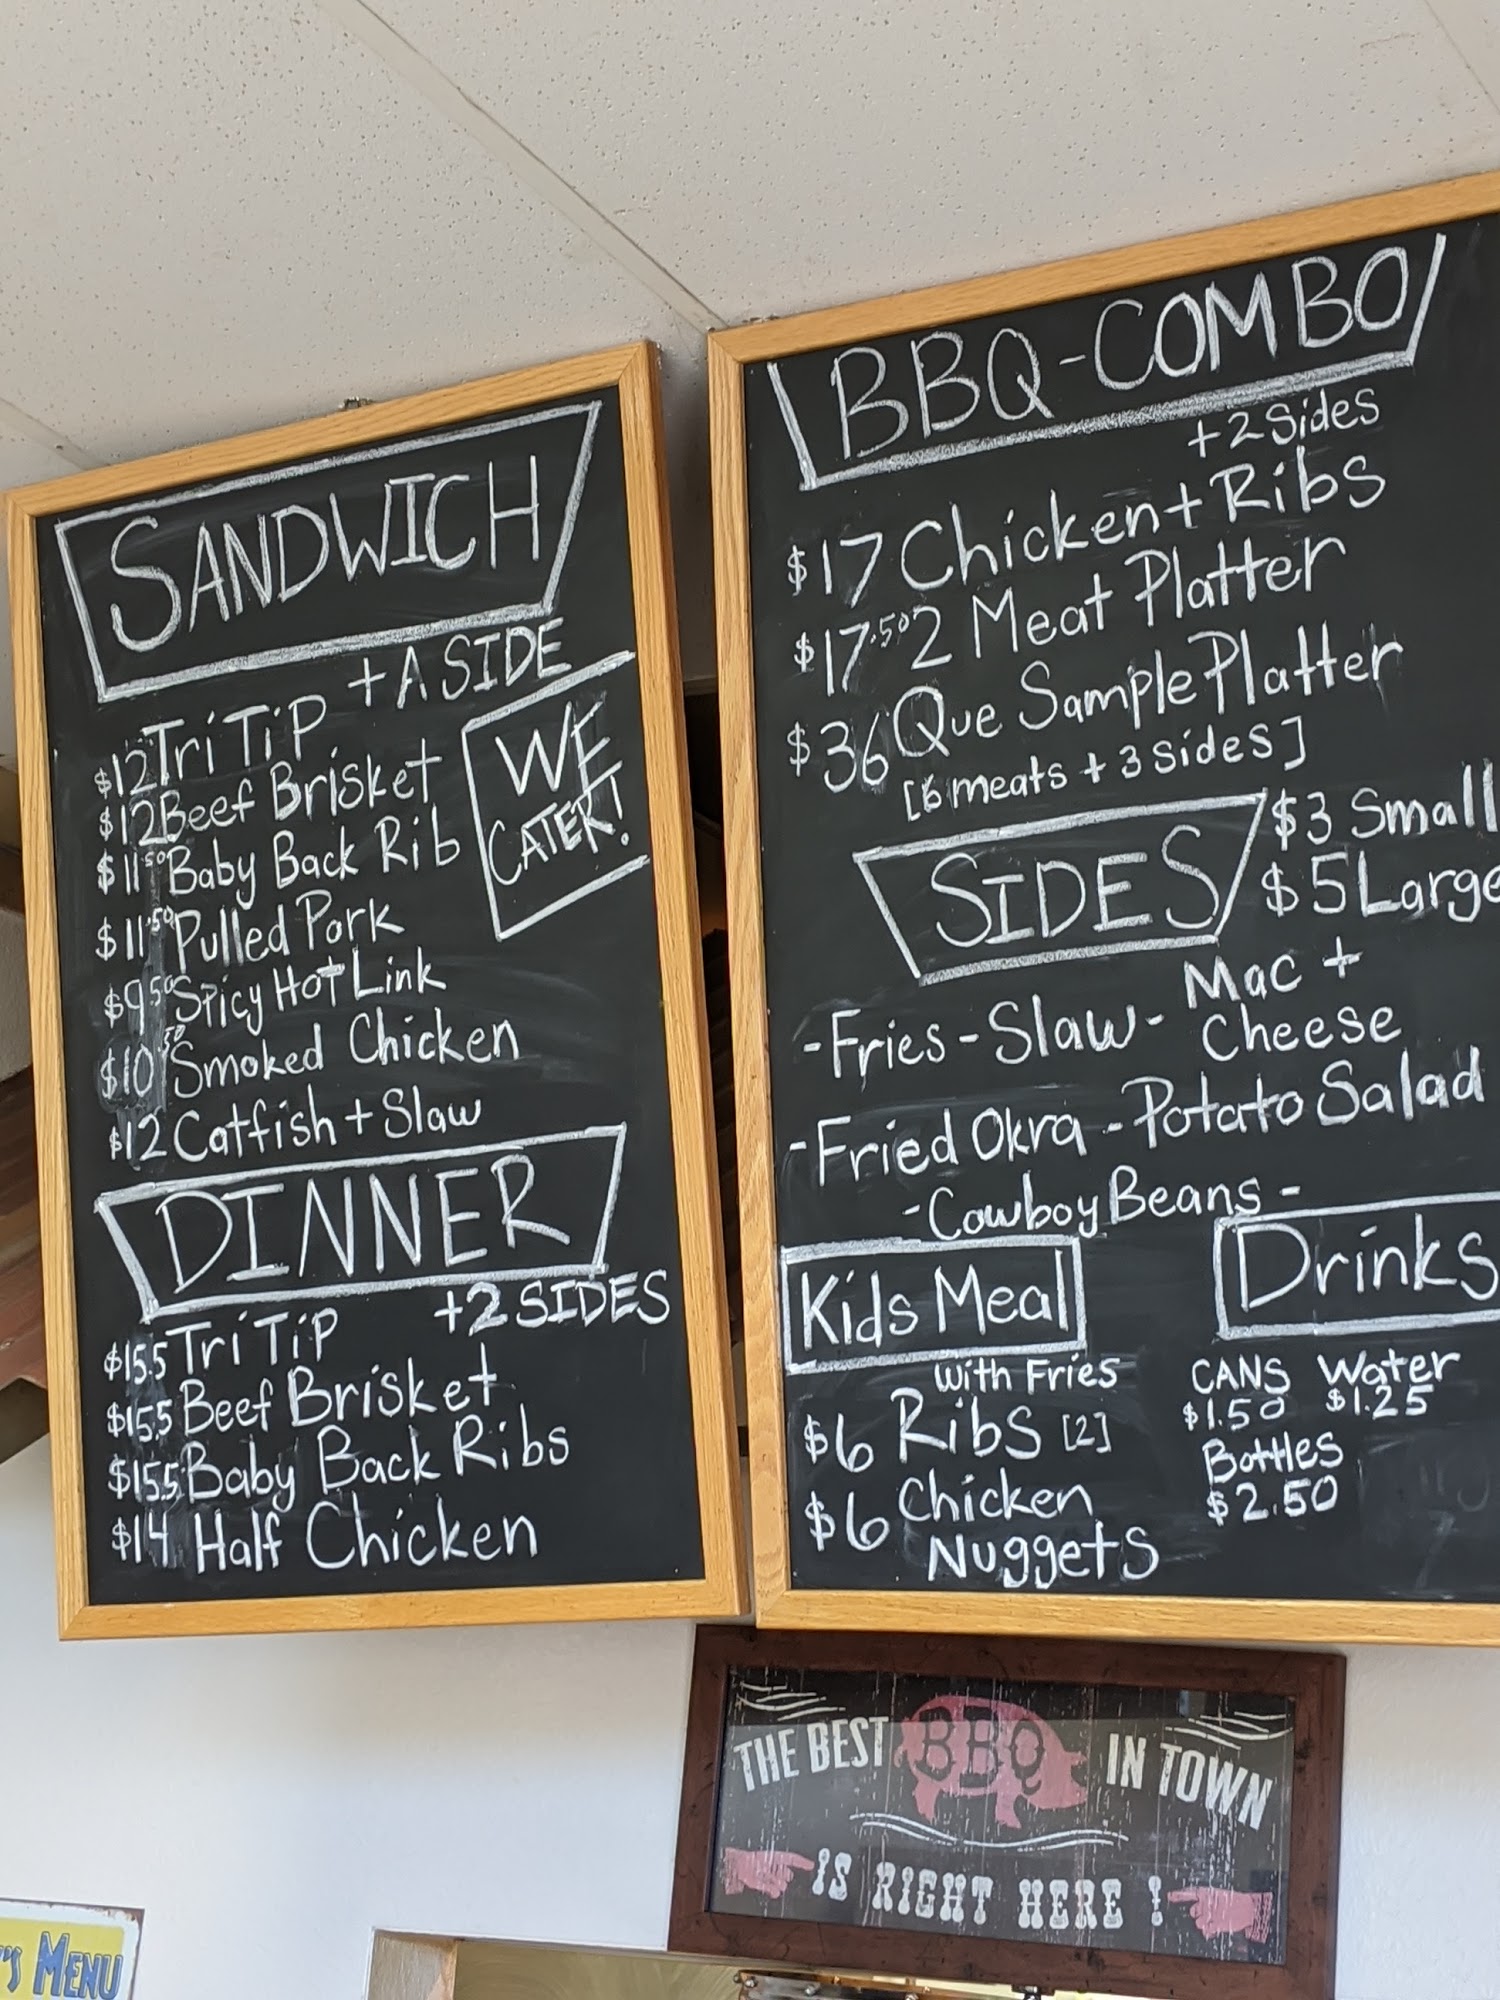 SANDWICH
+ A SIDE
$12 Tri Tip
$12 Beef Brisket
$11.50 Baby Back Rib
$11.50 Pulled Pork
$9.50 Spicy Hot Link
$10.50 Smoked Chicken
$12 Catfish + Slaw
WE
CATER!
DINNER
+2 SIDES
$15.5 Tri Tip
$15.5 Beef Brisket
$15.5 Baby Back Ribs
$14 Half Chicken
BBQ-COMBO
+2 Sides
$17 Chicken + Ribs
$17.50 2 Meat Platter
$36 Que Sample Platter
[6 meats + 3 sides]
SIDES
$3 Small
$5 Large
-Fries -Slaw- Mac +
Cheese
-Fried Okra -Potato Salad
-Cowboy Beans-
Kids Meal
with Fries
$6 Ribs [2]
$6 Chicken
Nuggets
Drinks
CANS Water
$1.50 $1.25
Bottles
$2.50
THE BEST BBQ IN TOWN
IS RIGHT HERE!
's MENU